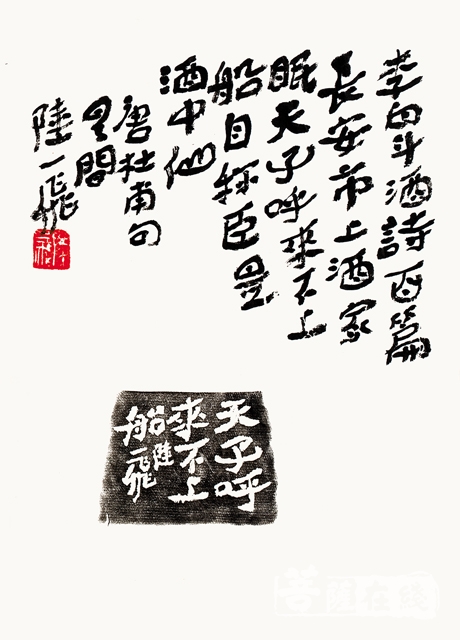 李白斗酒詩百篇
長安市上酒家
眠天子呼來不上
船自称臣是
酒中仙
唐杜甫句
間
陸一飛
天子呼
來不上
船陸一飛
菩薩在線